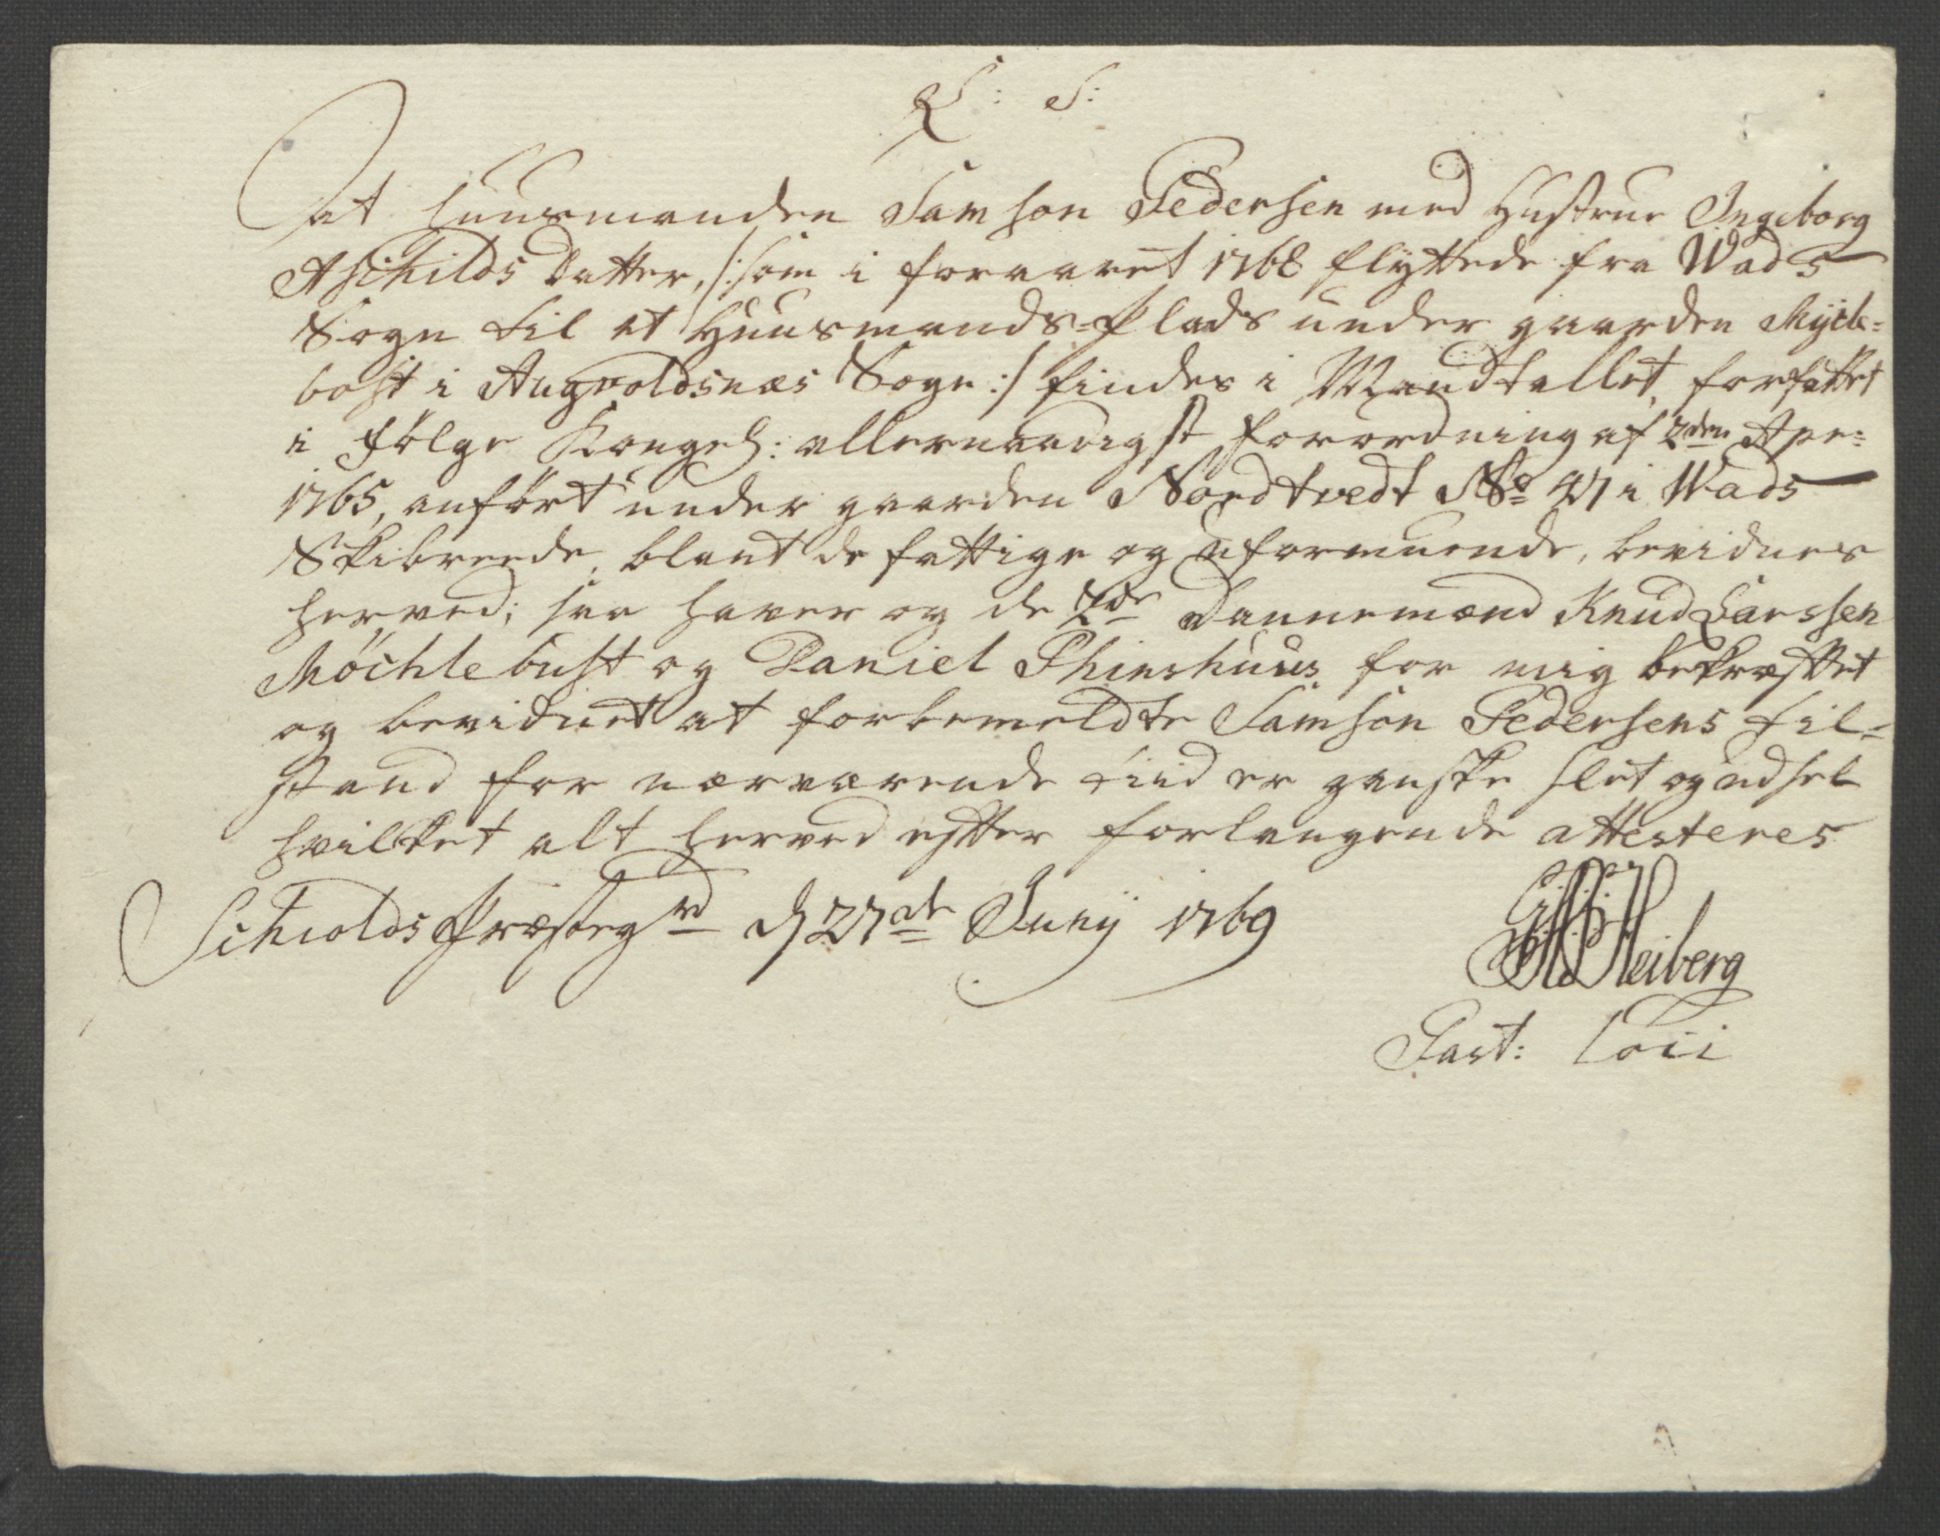 L: S:
At Huusmanden Samson Pedersen med Hustrue Ingeborg
Aschilds Datter, /: som i foraaret 1768 flyttede fra Wads
Sogn til et Huusmands-Plads under gaarden Myckle-
bost i Augvoldsnæs Sogn :/ findes i Mandtallet, forfattet
i følge Kongel: allernaadigst forordning af 2den Apr:
1765, anført under gaarden Nordtvedt No 47 i Wads
Skibreede, blant de fattige og uformuende, bevidnes
herved; saa haver og de 2de Dannemænd Knud Larssen
Møchlebust og Daniel Thinshuus for mig bekræftet
og bevidnet at forbemeldte Samson Pedersens til-
stand for nærværende tiid er ganske slet og udsel
hvilket alt herved efter forlangende attesteres
Schiolds Præstegrd d 27de Junij 1769
Heiberg
Past: loci